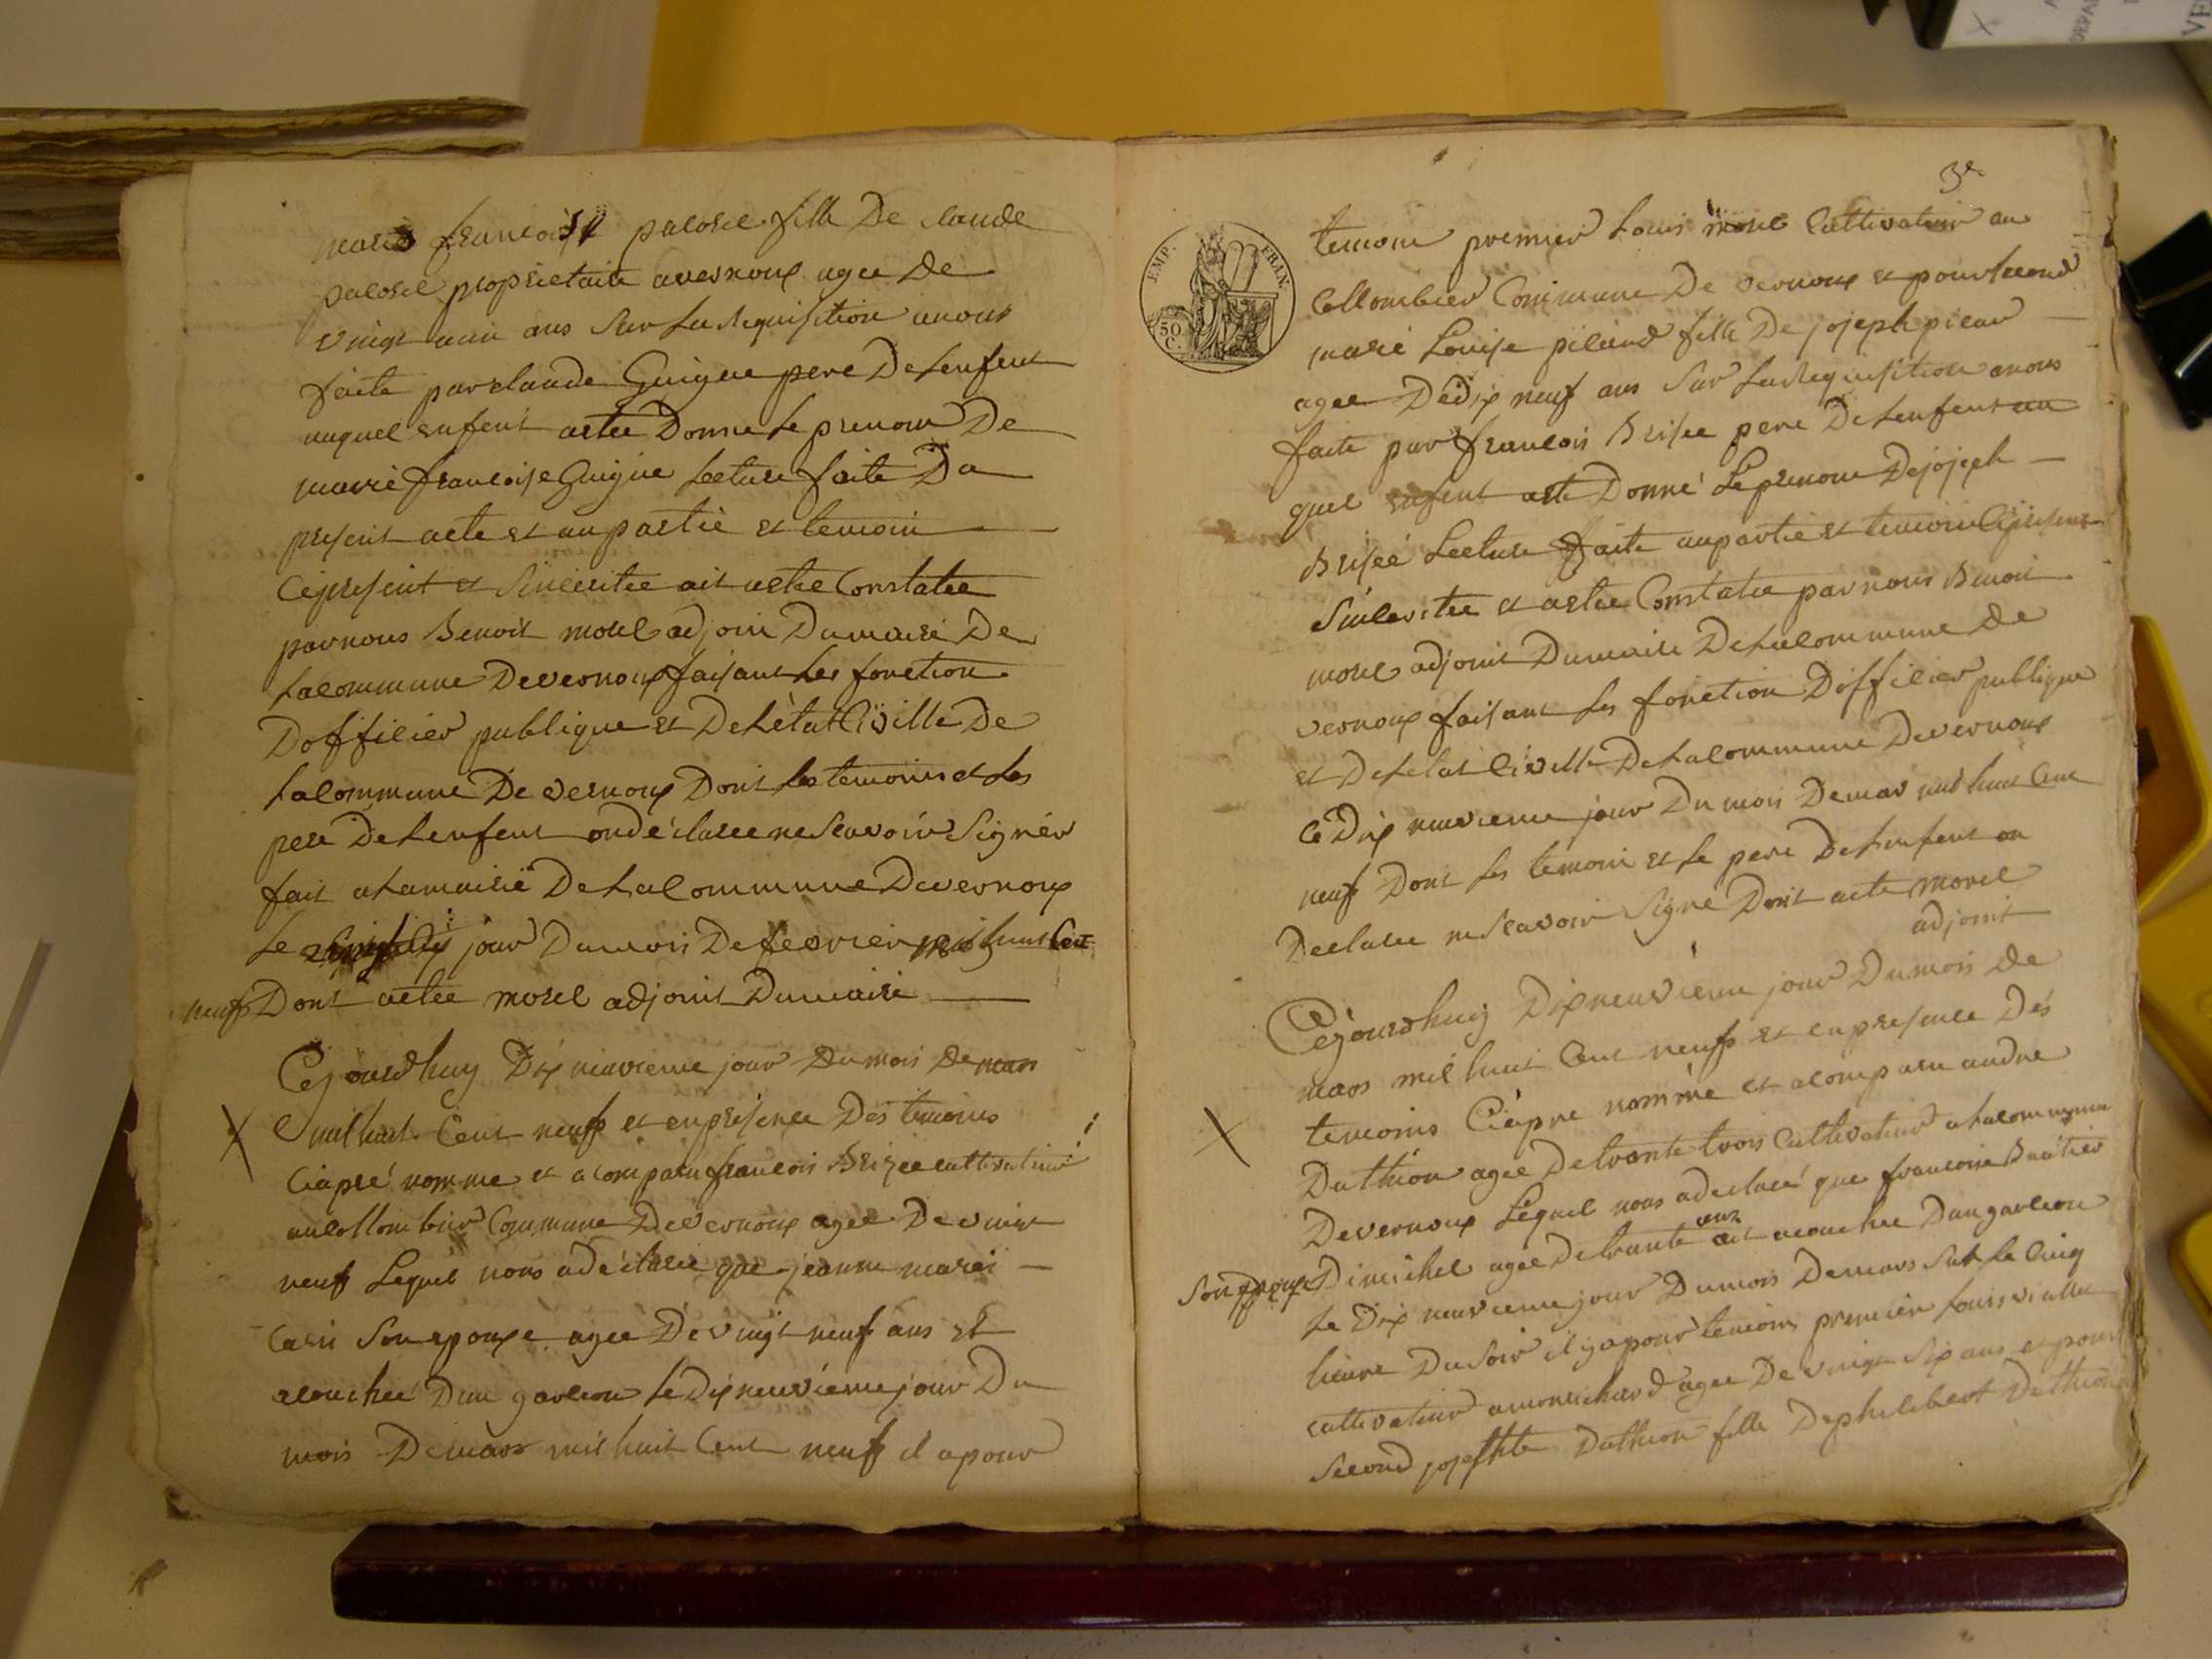 marie francoise palorel fille De claude
palorel proprietaire avernoux agee De
vingt un ans Sur La requisition anous
faite par claude Guigue pere De Lenfent
auquel enfent aetee Donne Le prenom De
marie francoise Guigue Lecture faite Du
present acte et au partie et temoin
Cepresent et Sinceritee ait aetee Constatee
par nous Benoit morel adjoin Dumaire De
La Commune De vernoux faisant Les fonction
Dofficier publique et De Létat Civille De
La Commune De vernoux Dont Les temoins et Les
pere De Lenfent on déclaree ne Scavoir Signér
fait a La mairie De La Commune De vernoux
Le jour Du mois De fevrier mil huit Cent
neuf Dont actee morel adjoint Dumaire
Cejourdhuy Dix neuvieme jour Du mois De mars
mil huit Cent neuf et en presence Des temoins
Ciapré nomme et a Comparu francois Brizee cultivateur
au Collombier Commune De vernoux agee De vingt
neuf Lequel nous a déclaré que jeanne marie
son epouxe agee De vingt neuf ans et
acouchee Dun garcon Le Dix neuvieme jour Du
mois De mars mil huit Cent neuf il a pour
3e
EMP. FRAN.
50 C.
temoin premier Louis morel Cultivateur au
Collombier Commune De vernoux et pour Second
marie Louise pilaud fille De joseph
agee De Dix neuf ans Sur La requisition anous
faite par francois Brisee pere De Lenfent au
quel enfent aete Donné Le prenom De joseph
Briseé Lecture faite au partie et temoin Cipresent
Sinceritee et aetee Constatee par nous Benoit
morel adjoint Dumaire De La Commune De
vernoux faisant Les fonction Dofficier publique
et De Letat Civille De La Commune De vernoux
Ce Dix neuvieme jour Du mois De mars mil huit Cent
neuf Dont Les temoin et Le pere De Lenfent on
Declaree ne Scavoir Signé Dont acte morel
adjoint
Cejourdhuy Dix neuvieme jour Du mois De
mars mil huit Cent neuf et en presence Dés
temoins Ciapre nommé et a Comparu andre
Duthion agee De trante trois Cultivateur a La Commune
De vernoux Lequel nous a declaré que francoise
Son epouxe Dimichel agee De trante ans ait acouchee Dun garcon
Le Dix neuvieme jour Du mois De mars Sur Le Cinq
heure Du Soir il y a pour temoins premier Louis
cultivateur agee De vingt Six ans et pour
Second Duthion fille De philibert Duthion